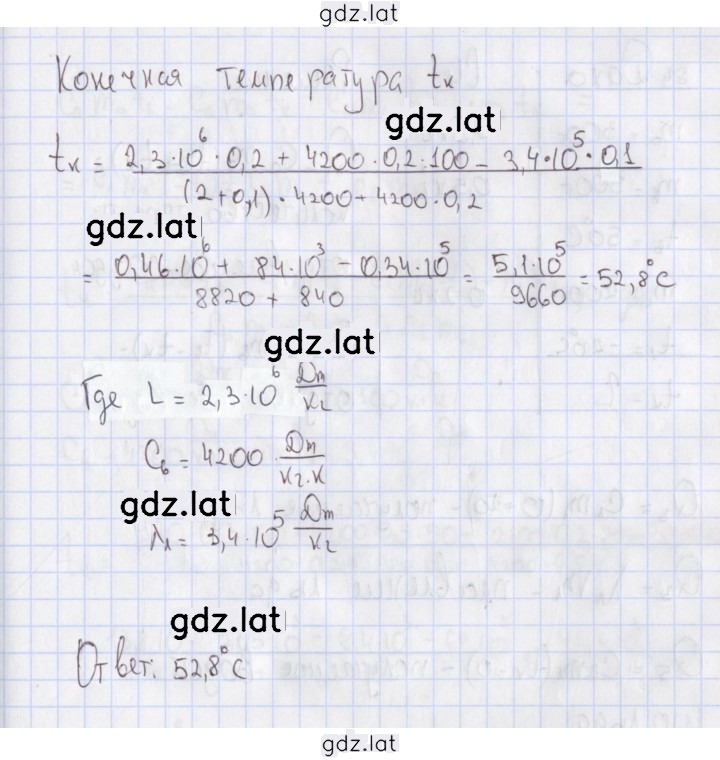 gdz.lat
Конечная температура tк
gdz.lat
tк = (2,3·10⁶·0,2 + 4200·0,2·100 - 3,4·10⁵·0,1) / ((2+0,1)·4200+4200·0,2)
gdz.lat
= (0,46·10⁶ + 84·10³ - 0,34·10⁵) / (8820 + 840) = 5,1·10⁵ / 9660 = 52,8°C
gdz.lat
Где L = 2,3·10⁶ Дж/кг
Cв = 4200 Дж/кг·К
gdz.lat
λл = 3,4·10⁵ Дж/кг
gdz.lat
Ответ: 52,8°C
gdz.lat